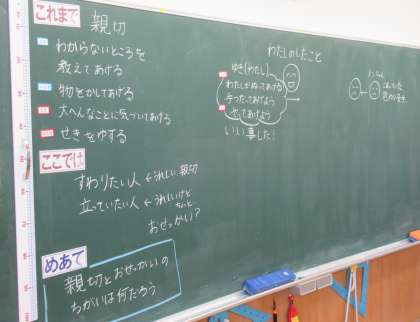 これまで
親切
わからないところを
教えてあげる
物をかしてあげる
大へんなことに気づいてあげる
せきをゆずる
ここでは
すわりたい人 ← うれしい 親切
立っていたい人 ← うれしいけど
ちょっと
おせっかい?
めあて
親切とおせっかいの
ちがいは何だろう
わたしのしたこと
ゆき(わたし)
わたしがぬってあげる
手つだってあげよう
やってあげよう
いい事した!